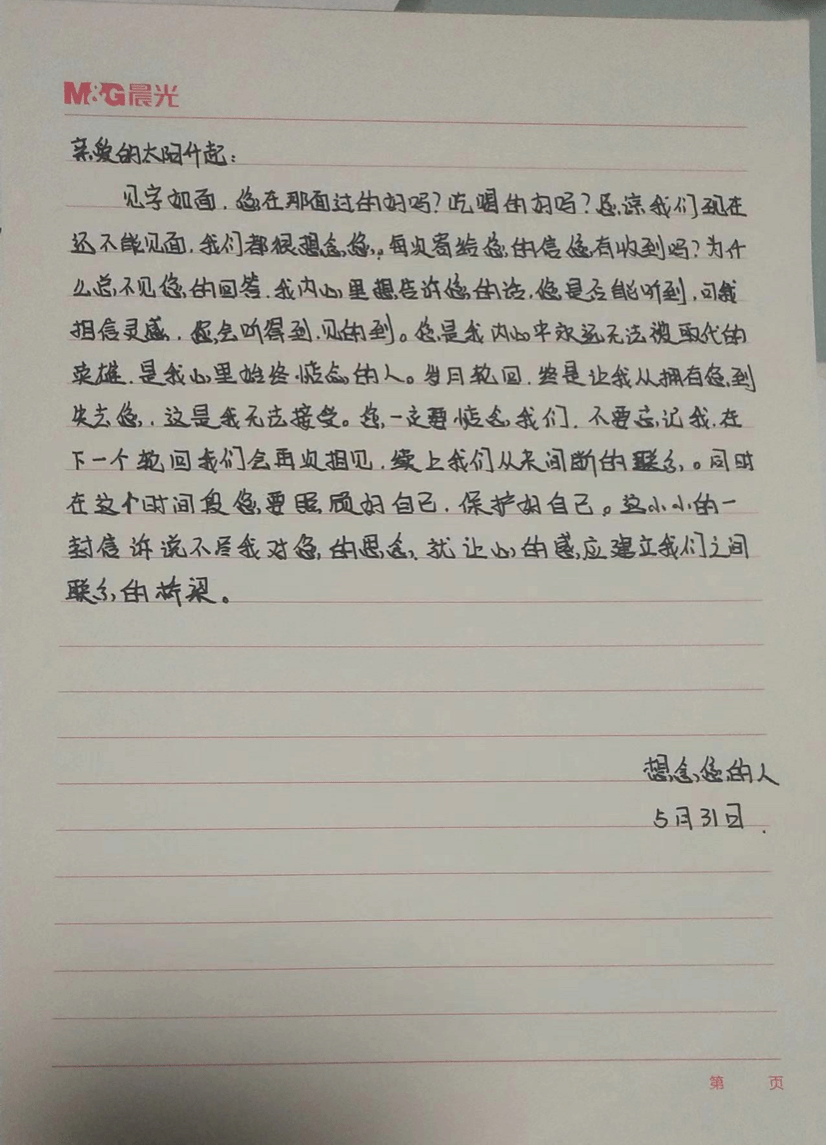 M&G晨光
亲爱的太阳升起：
见字如面．您在那面过的好吗？吃喝的好吗？原谅我们现在
还不能见面．我们都很想念您。每次寄给您的信您有收到吗？为什
么总不见您的回答．我内心里想告诉您的话．您是否能听到．可我
相信灵感．您会听得到．见的到。您是我内心中永远无法被取代的
英雄．是我心里始终惦念的人。岁月轮回．终是让我从拥有您到
失去您．这是我无法接受。您一定要惦念我们．不要忘记我．在
下一个轮回我们会再次相见．续上我们从未间断的联系。同时
在这个时间段您要照顾好自己．保护好自己。这小小的一
封信诉说不尽我对您的思念．就让心的感应建立我们之间
联系的桥梁。
想念您的人
5月31日．
第 页